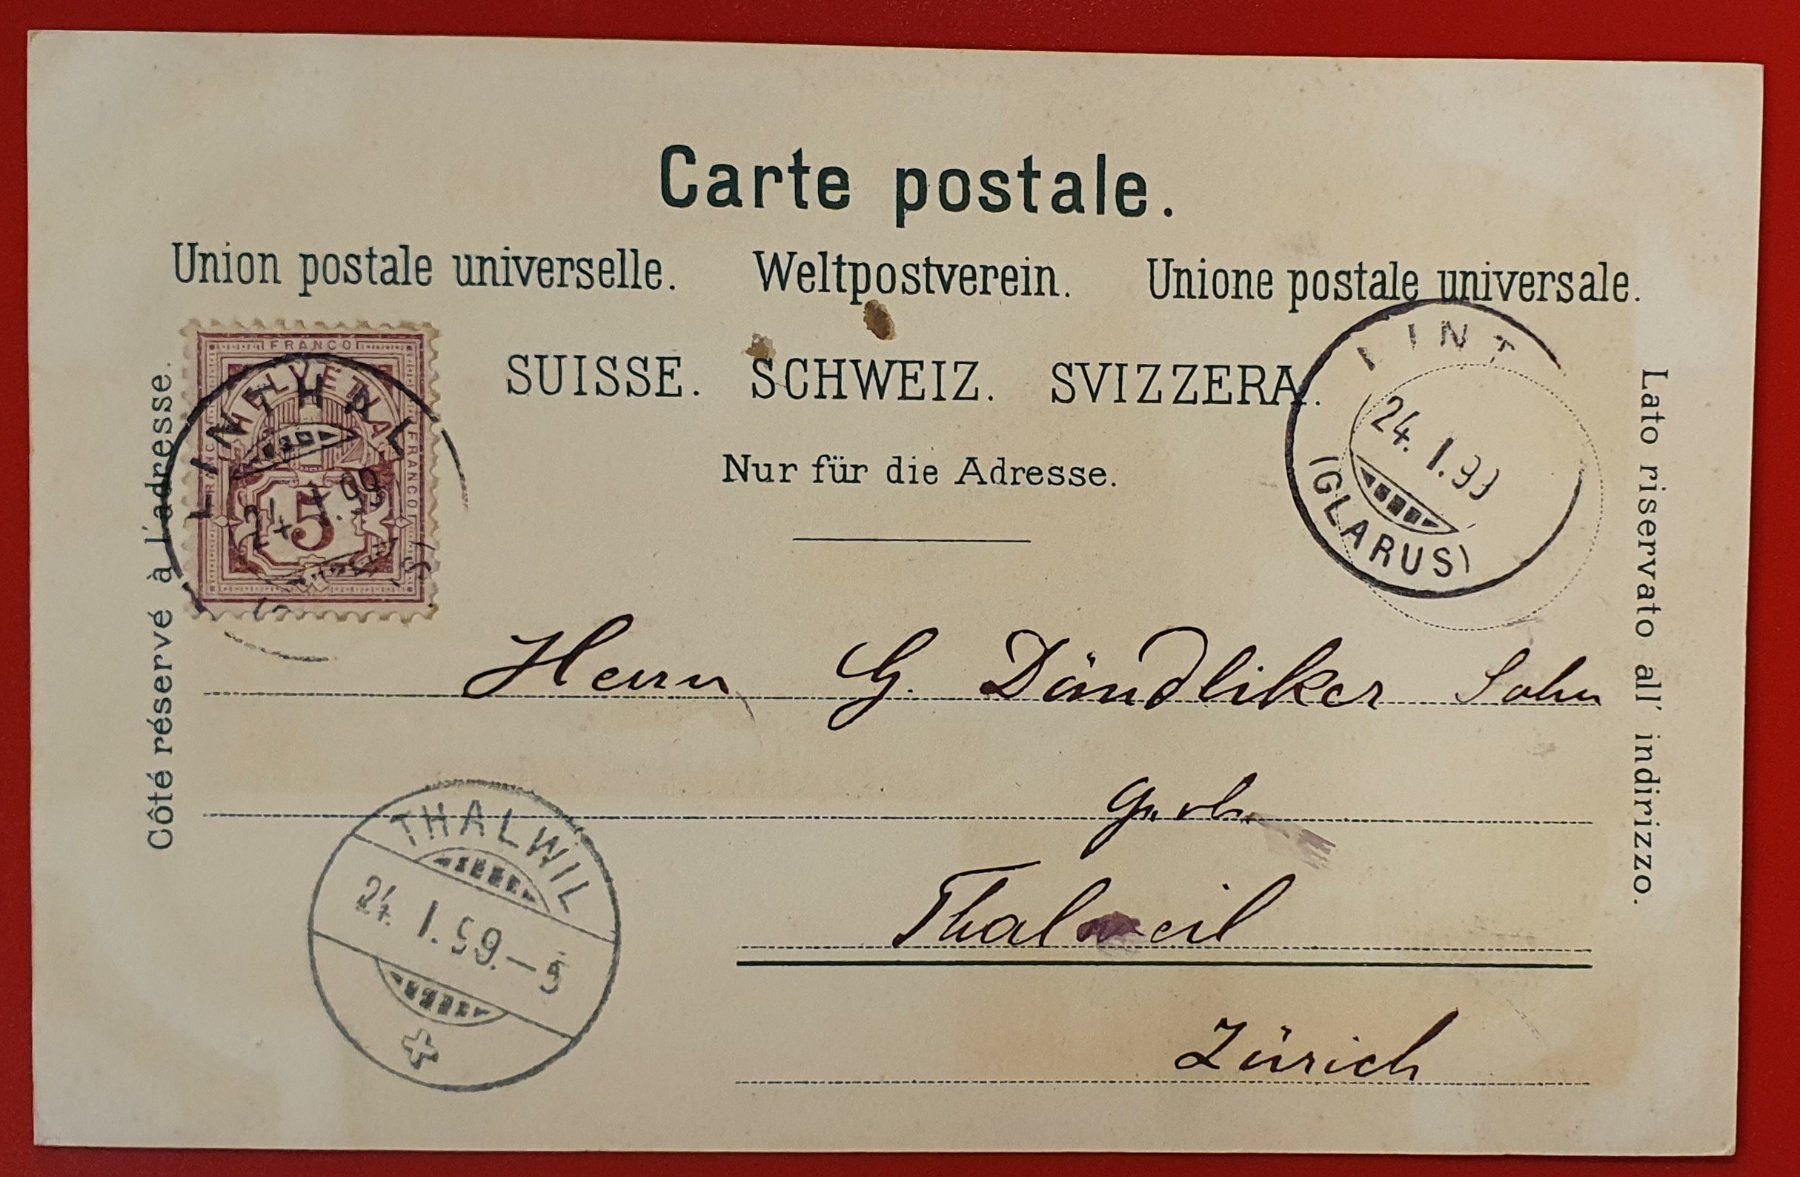 Carte postale.
Union postale universelle. Weltpostverein. Unione postale universale.
SUISSE. SCHWEIZ. SVIZZERA.
Nur für die Adresse.
Côté réservé à l'adresse.
Lato riservato all' indirizzo.
FRANCO
HELVETIA
FRANCO
5
LINTHAL
24. I. 99
LINT
24. I. 99
(GLARUS)
Herrn G. Dändliker Sohn
Thalweil
Zürich
THALWIL
24. I. 99.–5